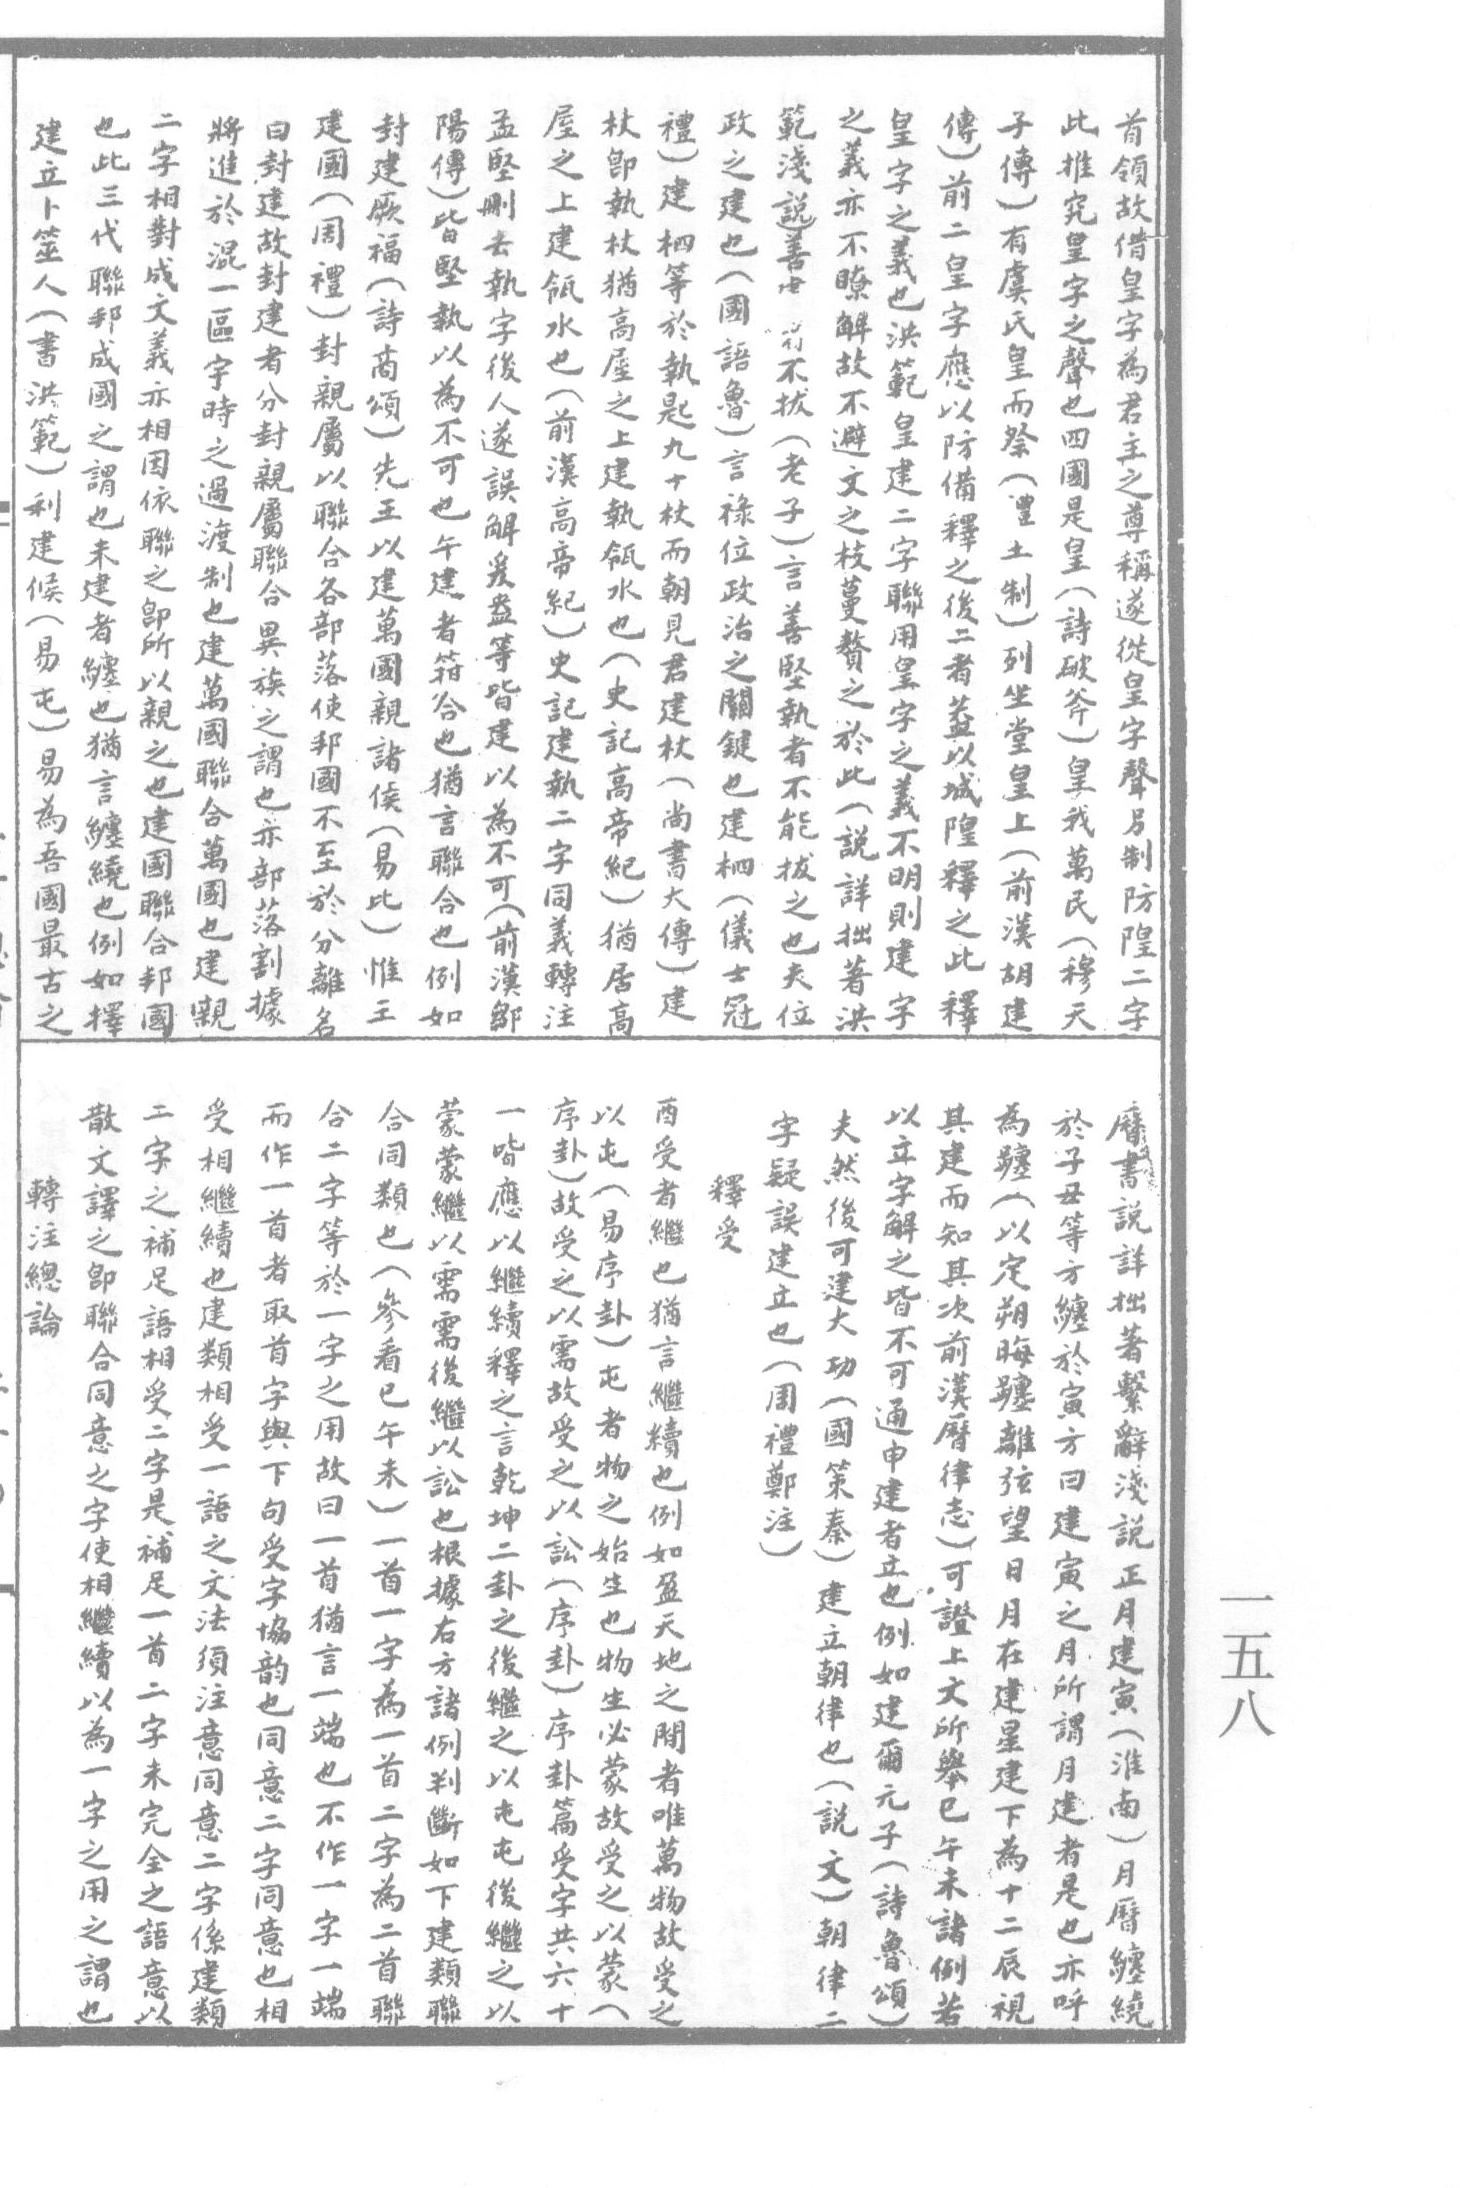 首領故借皇字為君主之尊稱遂從皇字聲另制防隍二字
此推究皇字之聲也四國是皇(詩破斧)皇我萬民(穆天
子傳)有虞氏皇而祭(禮王制)列坐堂皇上(前漢胡建
傳)前二皇字應以防備釋之後二者蓋以城隍釋之此釋
皇字之義也洪範皇建二字聯用皇字之義不明則建字
之義亦不瞭解故不避文之枝蔓贅之於此(說詳拙著洪
範淺說)善建者不拔(老子)言善堅執者不能拔之也夫位
政之建也(國語魯)言祿位政治之關鍵也建柶(儀士冠
禮)建柶等於執匙九十杖而朝見君建杖(尚書大傳)建
杖卽執杖猶高屋之上建執瓴水也(史記高帝紀)猶居高
屋之上建瓴水也(前漢高帝紀)史記建執二字同義轉注
孟堅刪去執字後人遂誤解爰盎等皆建以為不可(前漢鄒
陽傳)皆堅執以為不可也午建者箝合也猶言聯合也例如
封建厥福(詩商頌)先王以建萬國親諸侯(易比)惟王
建國(周禮)封親屬以聯合各部落使邦國不至於分離名
曰封建故封建者分封親屬聯合異族之謂也亦部落割據
將進於混一區宇時之過渡制也建萬國聯合萬國也建親
二字相對成文義亦相因依聯之卽所以親之也建國聯合邦國
也此三代聯邦成國之謂也未建者纏也猶言纏繞也例如擇
建立卜筮人(書洪範)利建候(易屯)易為吾國最古之
曆書說詳拙著繫辭淺說正月建寅(淮南)月曆纏繞
於子丑等方纏於寅方曰建寅之月所謂月建者是也亦呼
為躔(以定朔晦躔離弦望日月在建星建下為十二辰視
其建而知其次前漢曆律志)可證上文所舉巳午未諸例若
以立字解之皆不可通申建者立也例如建爾元子(詩魯頌)
夫然後可建大功(國策秦)建立朝律也(說文)朝律二
字疑誤建立也(周禮鄭注)
釋受
酉受者繼也猶言繼續也例如盈天地之間者唯萬物故受之
以屯(易序卦)屯者物之始生也物生必蒙故受之以蒙(
序卦)故受之以需故受之以訟(序卦)序卦篇受字共六十
一皆應以繼續釋之言乾坤二卦之後繼之以屯屯後繼之以
蒙蒙繼以需需後繼以訟也根據右方諸例判斷如下建類聯
合同類也(參看巳午未)一首一字為一首二字為二首聯
合二字等於一字之用故曰一首猶言一端也不作一字一端
而作一首者取首字與下句受字協韵也同意二字同意也相
受相繼續也建類相受一語之文法須注意同意二字係建類
二字之補足語相受二字是補足一首二字未完全之語意以
散文譯之卽聯合同意之字使相繼續以為一字之用之謂也
轉注總論
一五八